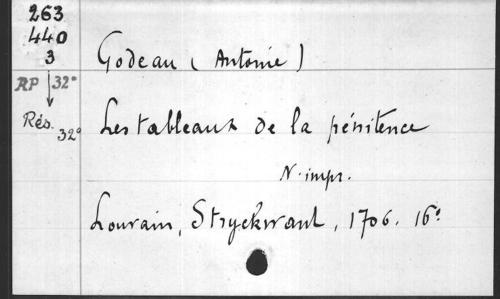 263
440
3
RP 32°
Rés. 32°
Godeau (Antoine)
Les tableaux de la pénitence
N. impr.
Louvain, Stryckwant, 1706. 16°